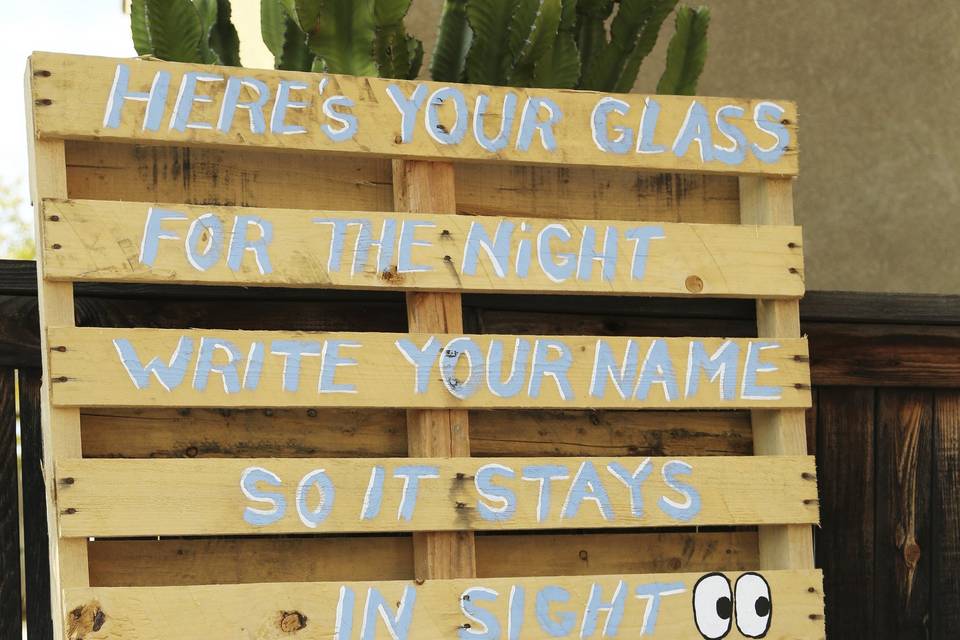 HERE'S YOUR GLASS
FOR THE NIGHT
WRITE YOUR NAME
SO IT STAYS
IN SIGHT